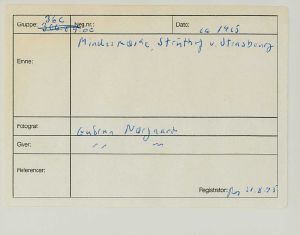 Gruppe: 36C Neg.nr.: Dato: ca 1965
Mindesmærke, Struthof v. Strasbourg
Emne:
Fotograf: Gudrun Nørgaard
Giver: " "
Referencer:
Registrator: 21.8.95